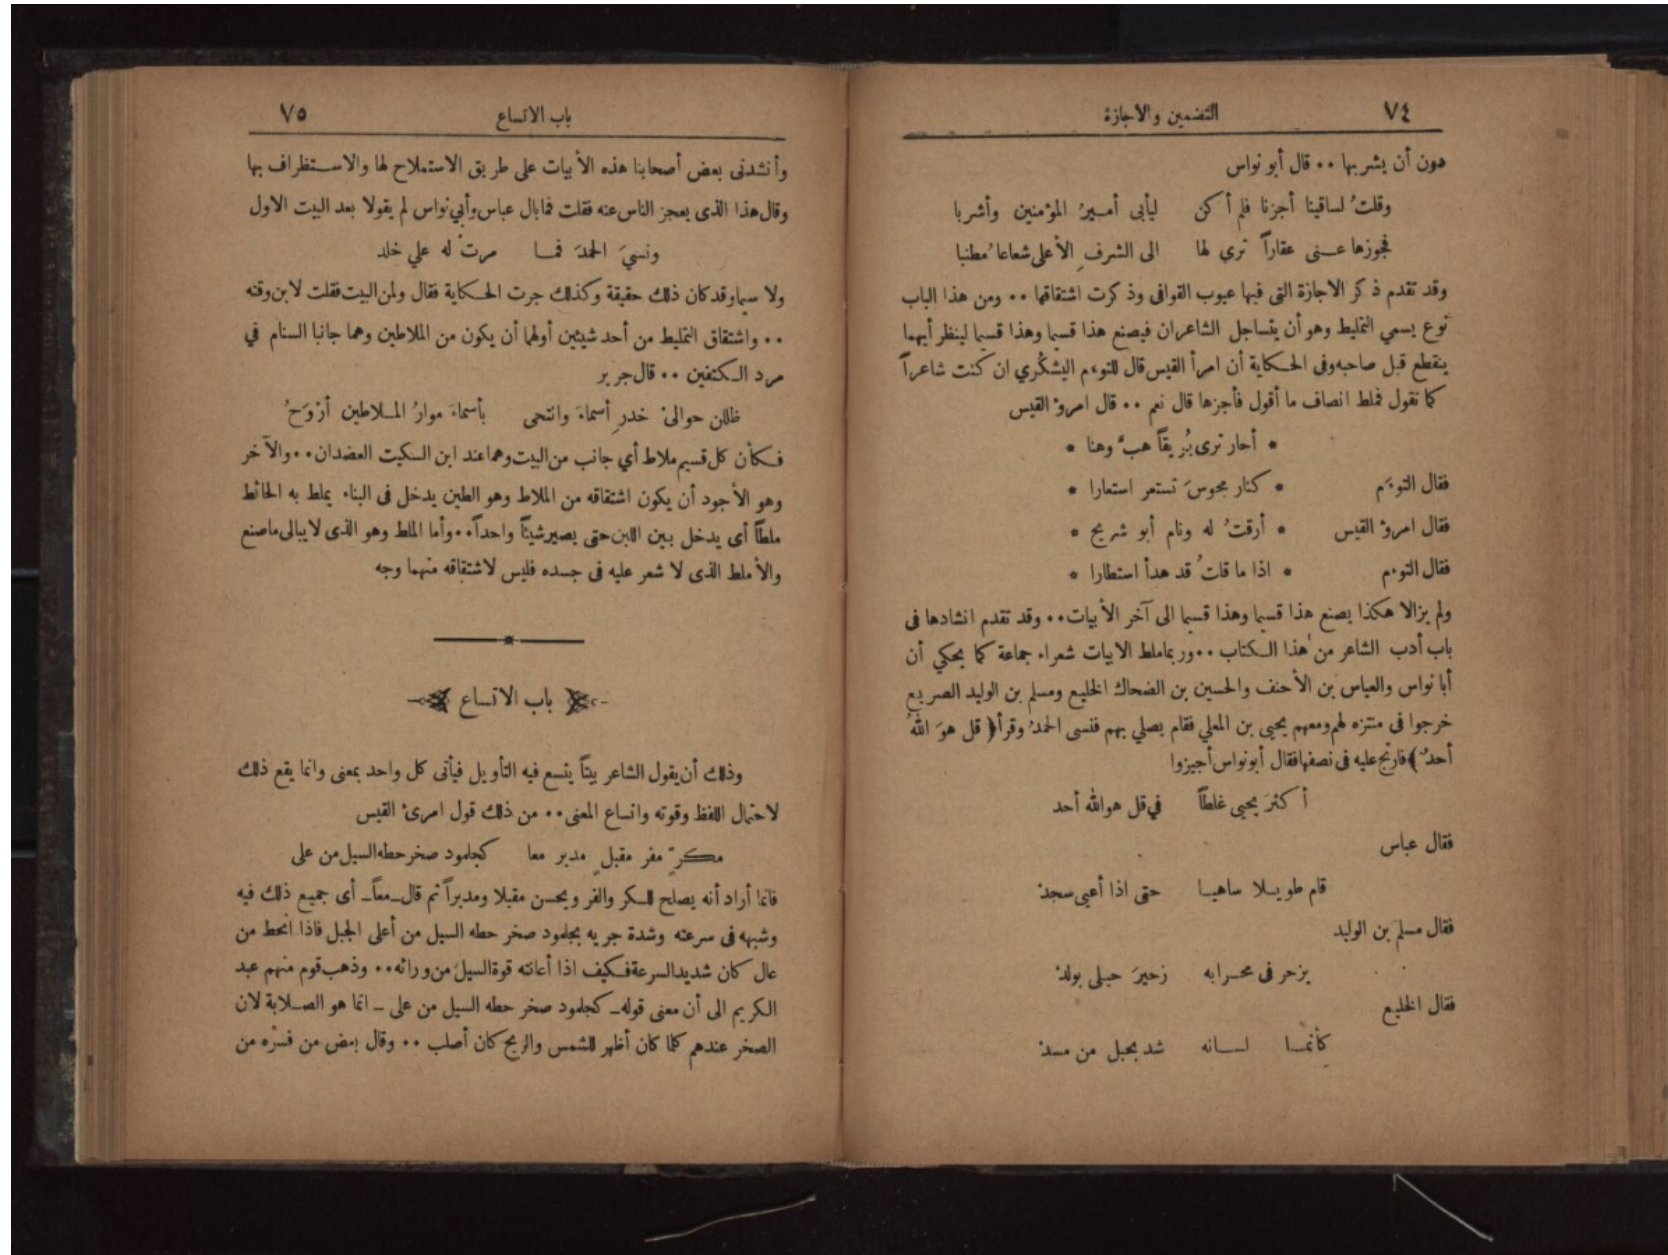 ٧٤ التضمين والاجازة
دون أن يشربها ٠٠ قال أبو نواس
وقلتُ لساقينا أجزنا فلم أكن ليأبى أمـيرُ المؤمنين وأشربا
فجوزها عـنى عقاراً ترى لها الى الشرفِ الأعلى شعاعاً مطنبا
وقد تقدم ذكر الاجازة التى فيها عيوب القوافى وذكرت اشتقاقها ٠٠ ومن هذا الباب
نوع يسمي التمليط وهو أن يتساجل الشاعران فيصنع هذا قسيما وهذا قسيما لينظر أيهما
ينقطع قبل صاحبه وفى الحـكاية أن امرأ القيس قال للتوءم اليشكُري ان كنت شاعراً
كما تقول فملط انصاف ما أقول فأجزها قال نعم ٠٠ قال امرؤ القيس
* أحار ترى بُريقاً هبَّ وهنا *
فقال التوءم * كنار مجوسَ تستعر استعارا *
فقال امرؤ القيس * أرقتُ له ونام أبو شريح *
فقال التوءم * اذا ما قلتُ قد هدأ استطارا *
ولم يزالا هكذا يصنع هذا قسيما وهذا قسيما الى آخر الأبيات ٠٠ وقد تقدم انشادها فى
باب أدب الشاعر من هذا الـكتاب ٠٠ وربما ملط الابيات شعراء جماعة كما يحكي أن
أبا نواس والعباس بن الأحنف والحسين بن الضحاك الخليع ومسلم بن الوليد الصريع
خرجوا فى منتزه لهم ومعهم يحيى بن المعلي فقام يصلي بهم فنسى الحمدُ وقرأ ﴿ قل هوَ اللهُ
أحدٌ ﴾ فارتج عليه فى نصفها فقال أبو نواس أجيزوا
أكثرَ يحيى غلطاً في قل هو الله أحد
فقال عباس
قام طويـلا ساهيـا حتى اذا أعيى سجدْ
فقال مسلم بن الوليد
يزحر فى محـرابه زحيرَ حبلى بولدْ
فقال الخليع
كأنمـا لسـانه شد بحبل من مسدْ
باب الاتساع ٧٥
وأنشدنى بعض أصحابنا هذه الأبيات على طريق الاستملاح لها والاسـتظراف بها
وقال هذا الذى يعجز الناس عنه فقلت فما بال عباس وأبي نواس لم يقولا بعد البيت الاول
ونسيَ الحمدَ فمـا مرتْ له علي خلد
ولا سيما وقد كان ذلك حقيقة وكذلك جرت الحـكاية فقال ولمن البيت فقلت لابن وقته
٠٠ واشتقاق التمليط من أحد شيئين أولهما أن يكون من الملاطين وهما جانبا السنام في
مرد الـكتفين ٠٠ قال جرير
ظللن حوالىْ خدرِ أسماءَ وانتحى بأسماءَ موارُ المـلاطين أرْوَحُ
فـكأن كل قسيم ملاط أي جانب من البيت وهما عند ابن السكيت العضدان ٠٠ والآخر
وهو الأجود أن يكون اشتقاقه من الملاط وهو الطين يدخل فى البناء يملط به الحائط
ملطاً أى يدخل بين اللبن حتى يصير شيئاً واحداً ٠٠ وأما الملط وهو الذى لا يبالى ما صنع
والأملط الذى لا شعر عليه فى جسده فليس لاشتقاقه منهما وجه
باب الاتساع
وذلك أن يقول الشاعر بيتاً يتسع فيه التأويل فيأتى كل واحد بمعنى وانما يقع ذلك
لاحتمال اللفظ وقوته واتساع المعنى ٠٠ من ذلك قول امرئ القيس
مـكرّ مفر مقبلٍ مدبر معا كجلمود صخر حطه السيل من على
فانما أراد أنه يصلح للـكر والفر ويحسن مقبلا ومدبراً ثم قال ـ معاً ـ أى جميع ذلك فيه
وشبهه فى سرعته وشدة جريه بجلمود صخر حطه السيل من أعلى الجبل فاذا انحط من
عال كان شديد السرعة فـكيف اذا أعانته قوة السيل من ورائه ٠٠ وذهب قوم منهم عبد
الكريم الى أن معنى قوله ـ كجلمود صخر حطه السيل من على ـ انما هو الصـلابة لان
الصخر عندهم كلما كان أظهر للشمس والريح كان أصلب ٠٠ وقال بعض من فسره من